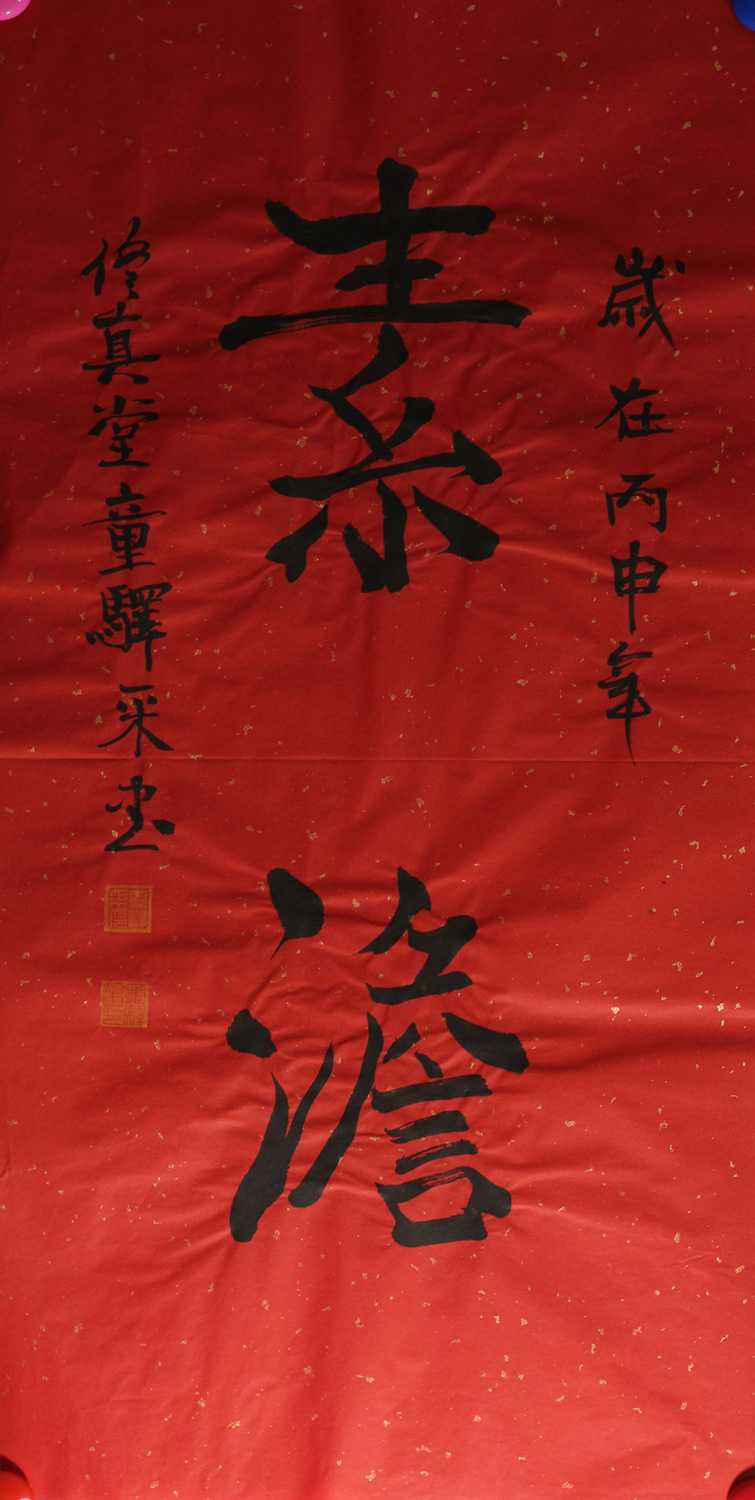 歲在丙申年
素澹
修真堂童驛采書